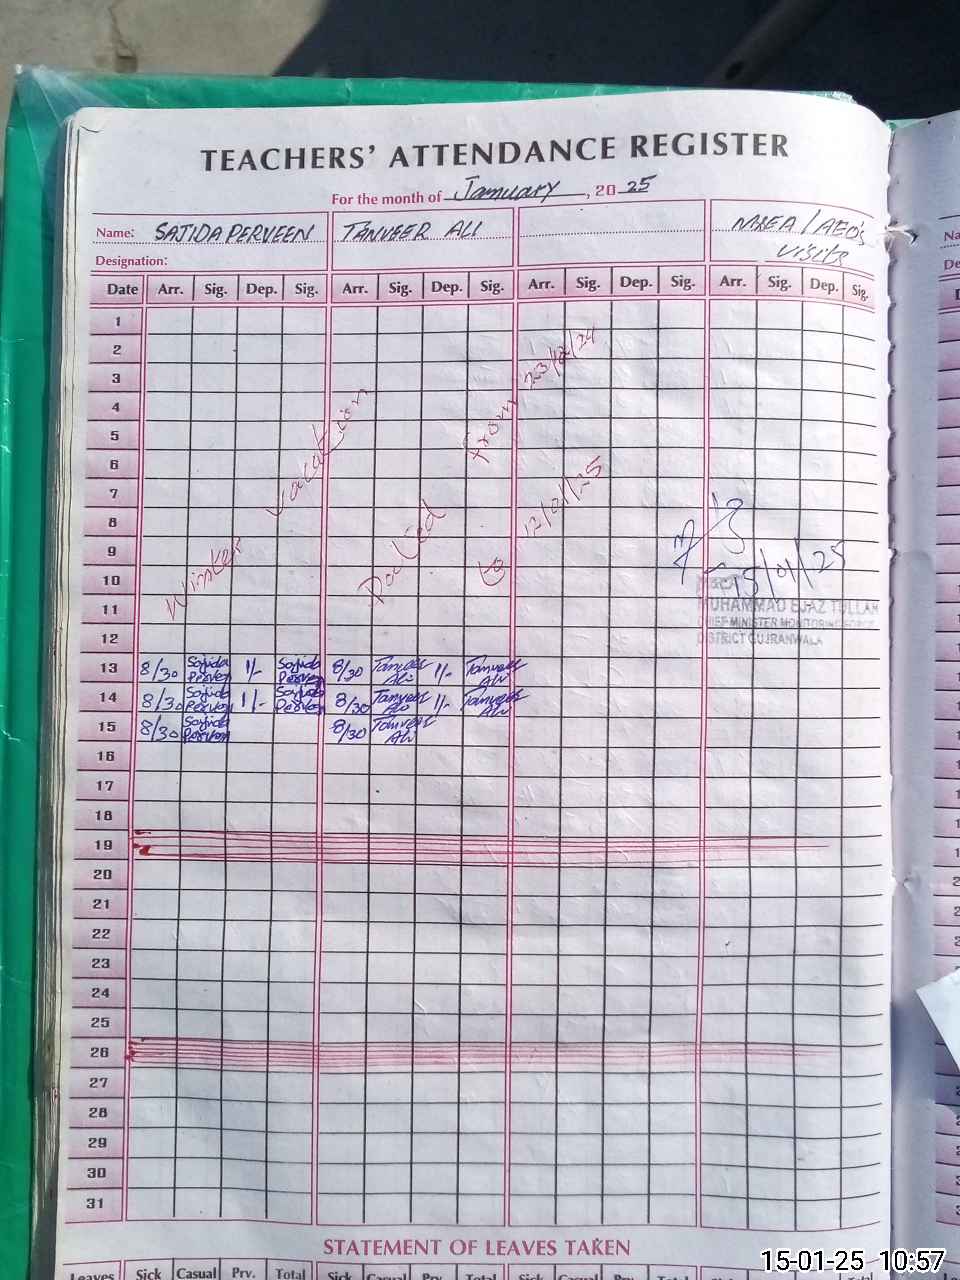 TEACHERS' ATTENDANCE REGISTER
For the month of January, 2025
Name: SAJIDA PERVEEN TANVEER ALI MREA / AEO's
visits
Designation:
Date Arr. Sig. Dep. Sig. Arr. Sig. Dep. Sig. Arr. Sig. Dep. Sig. Arr. Sig. Dep. Sig.
1
2
3
4
5
6
7
8
9
10
11
12
Winter vacation
from 23/12/24
to 12/01/25
15/01/25
MUHAMMAD EJAZ TULLAH
CHIEF MINISTER MONITORING FORCE
DISTRICT GUJRANWALA
13 8/30 Sajida Perveen 1/- Sajida Perveen 8/30 Tanveer Ali 1/- Tanveer Ali
14 8/30 Sajida Perveen 1/- Sajida Perveen 8/30 Tanveer Ali 1/- Tanveer Ali
15 8/30 Sajida Perveen 8/30 Tanveer Ali
16
17
18
19
20
21
22
23
24
25
26
27
28
29
30
31
STATEMENT OF LEAVES TAKEN
Leaves Sick Casual Prv. Total Sick Casual Prv. Total Sick Casual Prv. Total Sick Casual Prv. Total
15-01-25 10:57